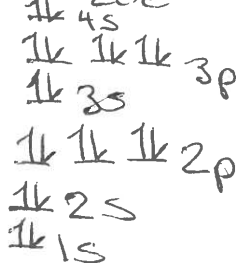 1l 4s
1l 1l 1l 3p
1l 3s
1l 1l 1l 2p
1l 2s
1l 1s